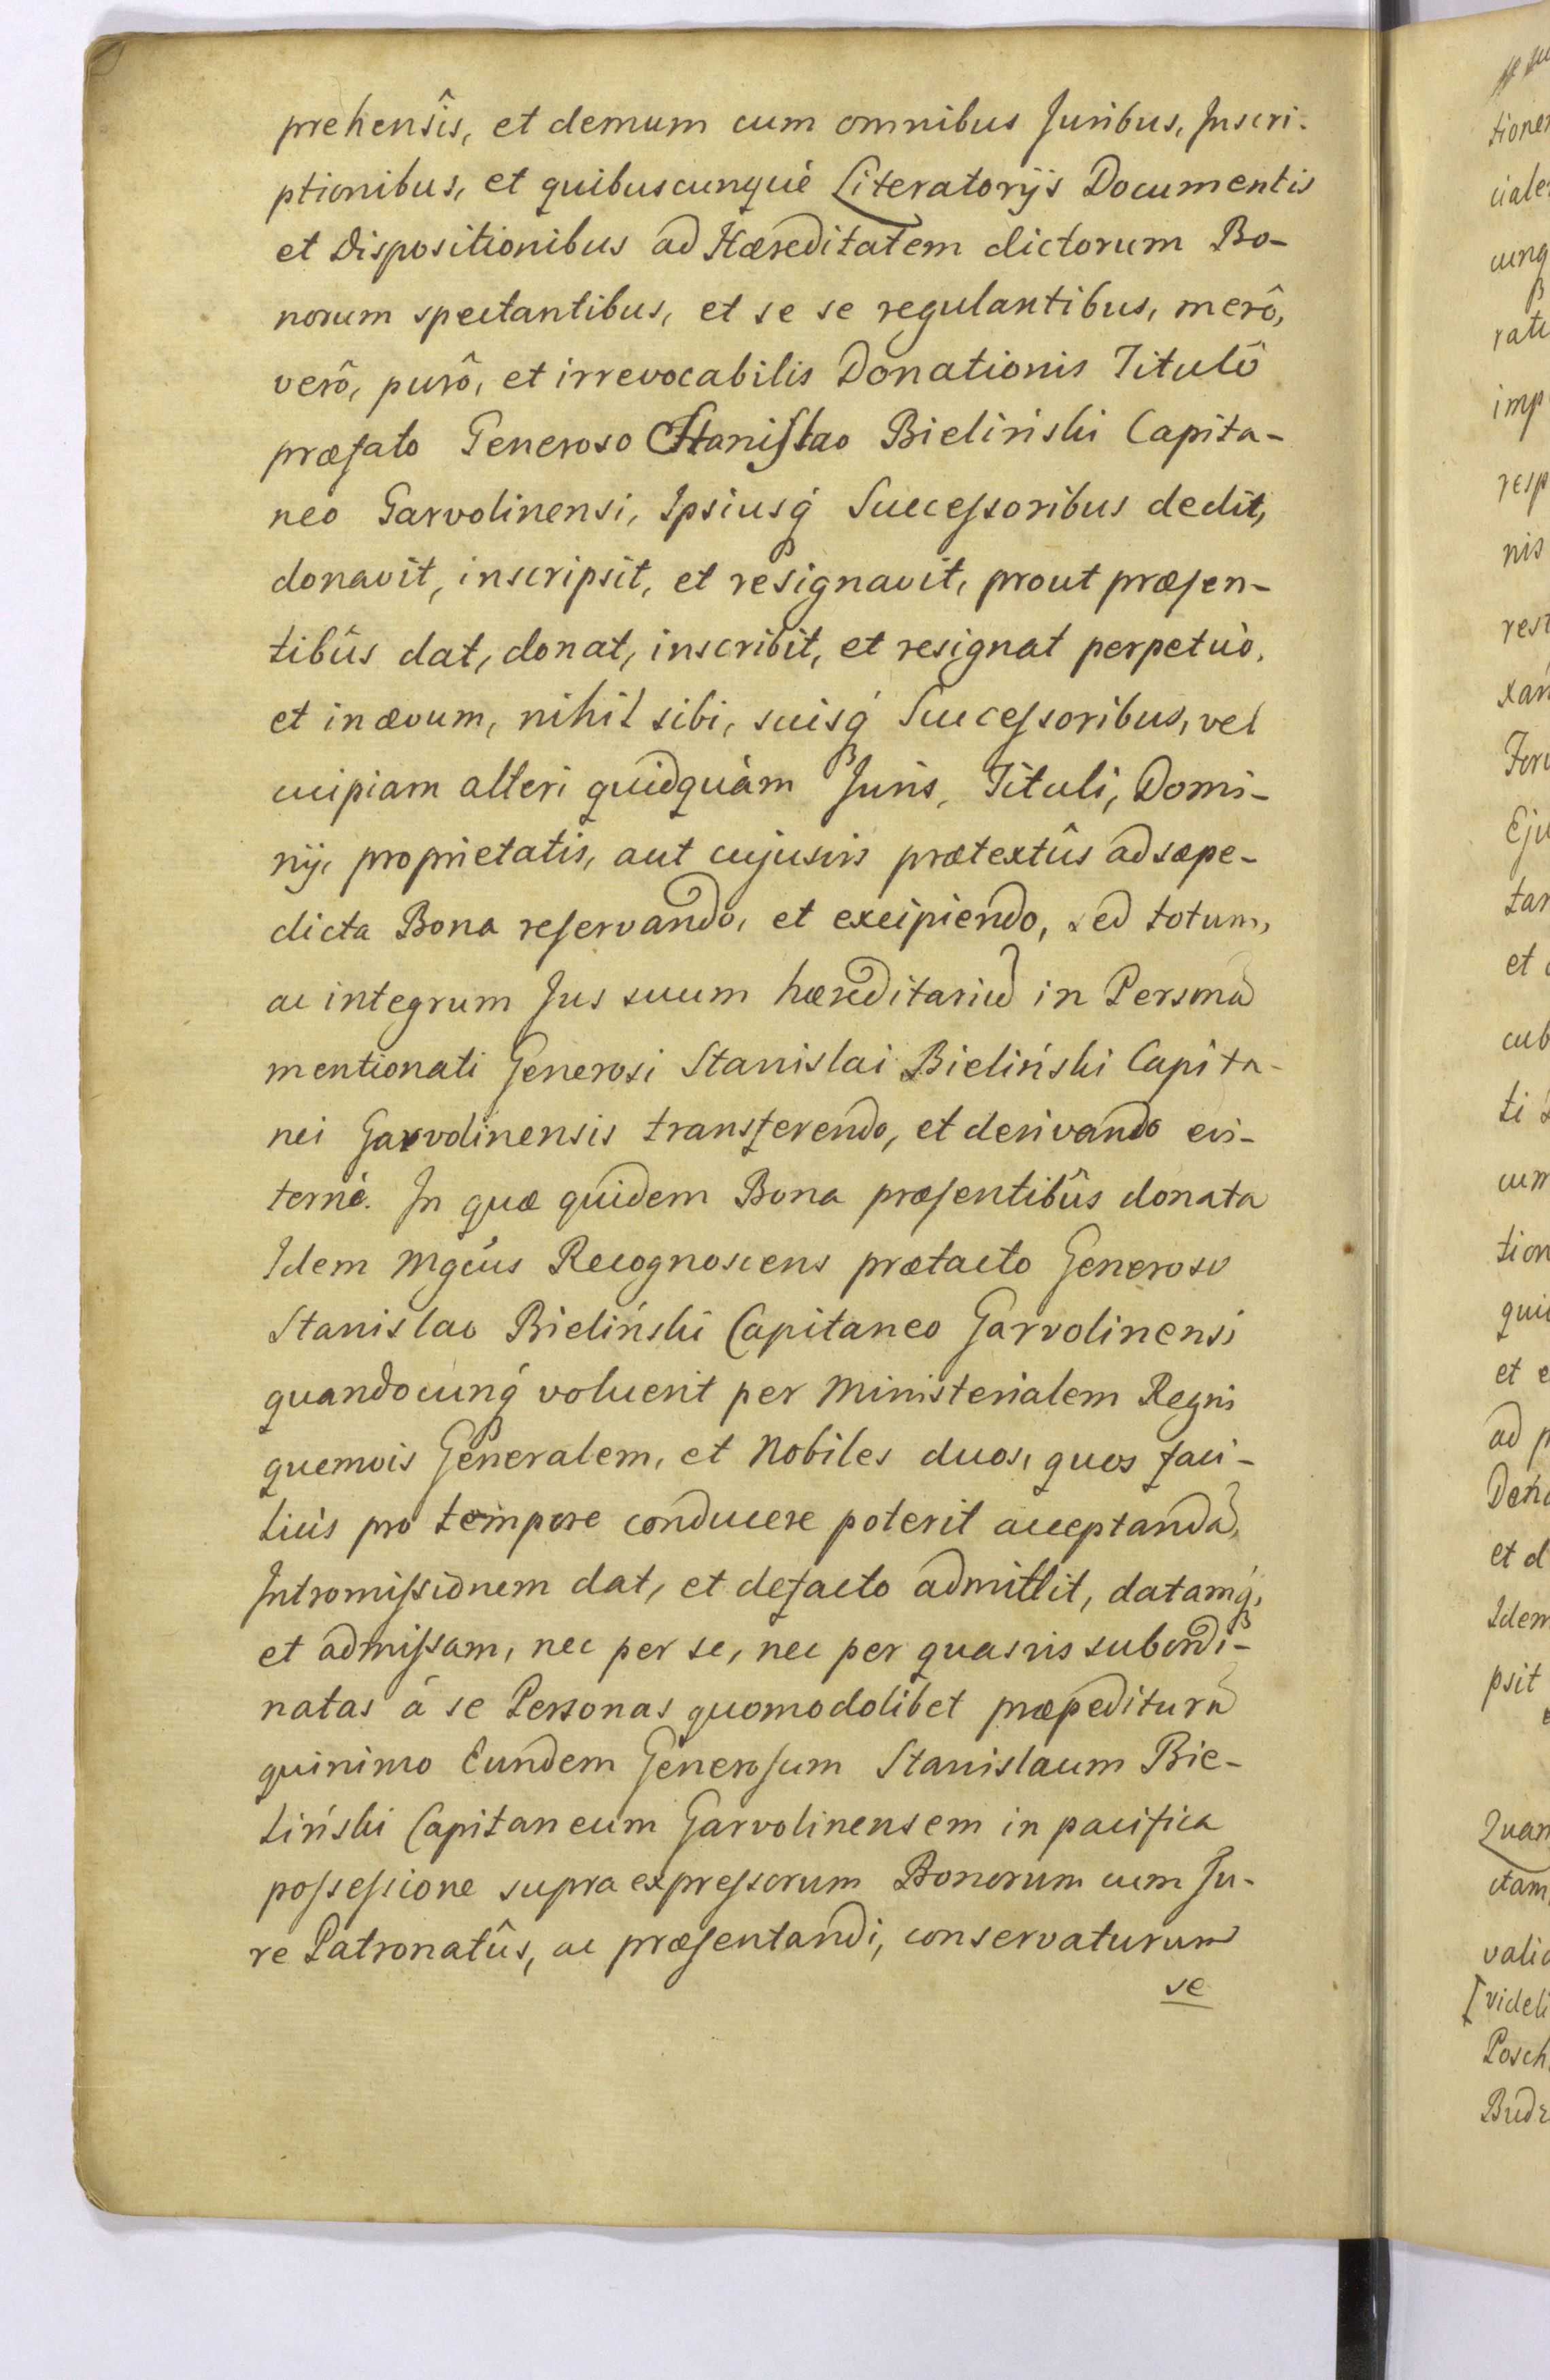 prehensîs, et demum cum omnibus Juribus, Inscri-
ptionibus, et quibuscunqué Literatorijs Documentis
et Dispositionibus ad Hæreditatem dictorum Bo-
norum spectantibus, et se se regulantibus, merô,
verô, purô, et irrevocabilis Donationis Titulô
præfato Generoso Stanislao Bieliński Capita-
neo Garvolinensi, Ipsiusq́ Successoribus dedit,
donavit, inscripsit, et resignavit, prout præsen-
tibûs dat, donat, inscribit, et resignat perpetuò,
et in ævum, nihil sibi, suisq́ Successoribus, vel
cuipiam alteri quidquàm Juris, Tituli, Domi-
nij, proprietatis, aut cujusvis prætextûs ad sæpe-
dicta Bona reservando, et excipiendo, sed totum,
ac integrum Jus suum hæreditariũ in Personã
mentionati Generosi Stanislai Bieliński Capita-
nei Garvolinensis transferendo, et derivando evi-
ternè. In quæ quidem Bona præsentibûs donata
Idem Mgcus Recognoscens prætacto Generoso
Stanislao Bieliński Capitaneo Garvolinensi
quandocunq́ voluerit per Ministerialem Regni
quemvis Generalem, et Nobiles duos, quos faci-
liús pro tempore conducere poterit acceptandã,
Intromissionem dat, et defacto admittit, datamq́,
et admissam, nec per se, nec per quasvis subordi-
natas á se Personas quomodolibet præpediturũ
quinimo Eundem Generosum Stanislaum Bie-
liński Capitaneum Garvolinensem in pacifica
possessione supra expressorum Bonorum cum Ju-
re Patronatûs, ac præsentandi, conservaturum
se